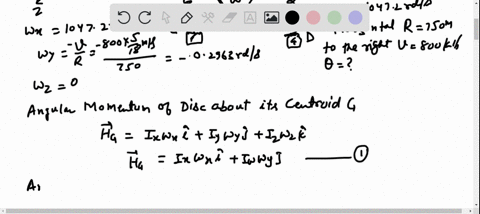 Wx = 1047.2
Wy = -V/R = -800×5/18 m/s / 750 = -0.2963 rd/s
Wz = 0
1047.2 rd/s
R = 750m
to the right V = 800 k
θ = ?
Angular Momentum of Disc about its Centroid G
H⃗G = Ix ωx î + Iy ωy ĵ + Iz ωz k̂
H⃗G = Ix ωx î + Iy ωy ĵ ——— ①